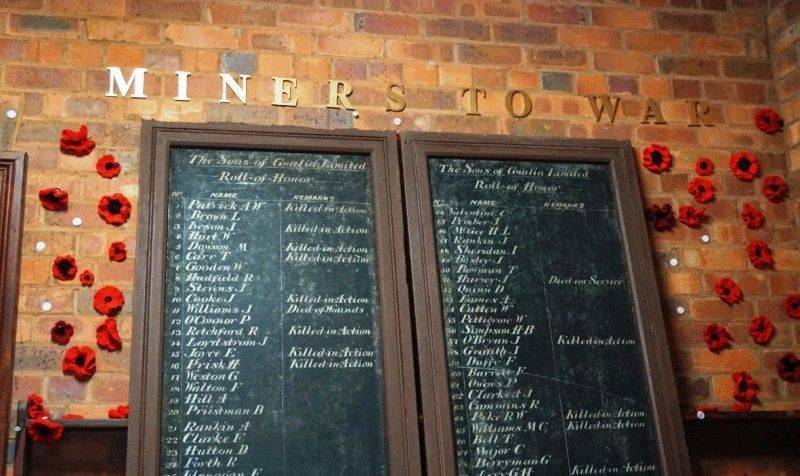 MINERS TO WAR
The Sons of Gwalia Limited
Roll-of-Honor
No NAME REMARKS
1 Patrick A W Killed in Action
2 Brown L
3 Keson J Killed in Action
4 Hart W
5 Dawson M Killed in Action
6 Carr T Killed in Action
7 Gooden W
8 Hadfield R
9 Stevens J
10 Cooke J Killed in Action
11 Williams J Died of Wounds
12 O'Connor P
13 Retchford R Killed in Action
14 Loydstrom J
15 Joyce E Killed in Action
16 Prisk H Killed in Action
17 Weston G
18 Walton F
19 Hill A
20 Priestman B
21 Rankin A
22 Clarke E
23 Hutton D
24 Forth R
The Sons of Gwalia Limited
Roll-of-Honor
NAME REMARKS
Valentine C
Pember J
McGee H L
Rankin J
Sheridan J
Bosley J
Bowman T
Harvey J Died on Service
Quinn D
James A
Cutten W
Pettigrew W
56 Simpson H B
57 O'Bryan J Killed in Action
58 Griffith J
59 Duff F
60 Barrett F
61 Owens P
62 Clarke A J
63 Cummins R
64 Pyke R W Killed in Action
65 Williams M C Killed in Action
66 Bill T
67 Major C
Berryman G
Killed in Action